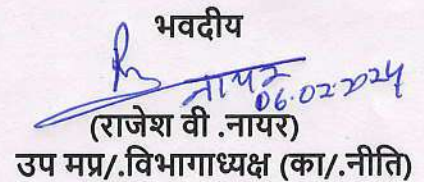 भवदीय
नायर
06.02.2024
(राजेश वी .नायर)
उप मप्र/.विभागाध्यक्ष (का/.नीति)